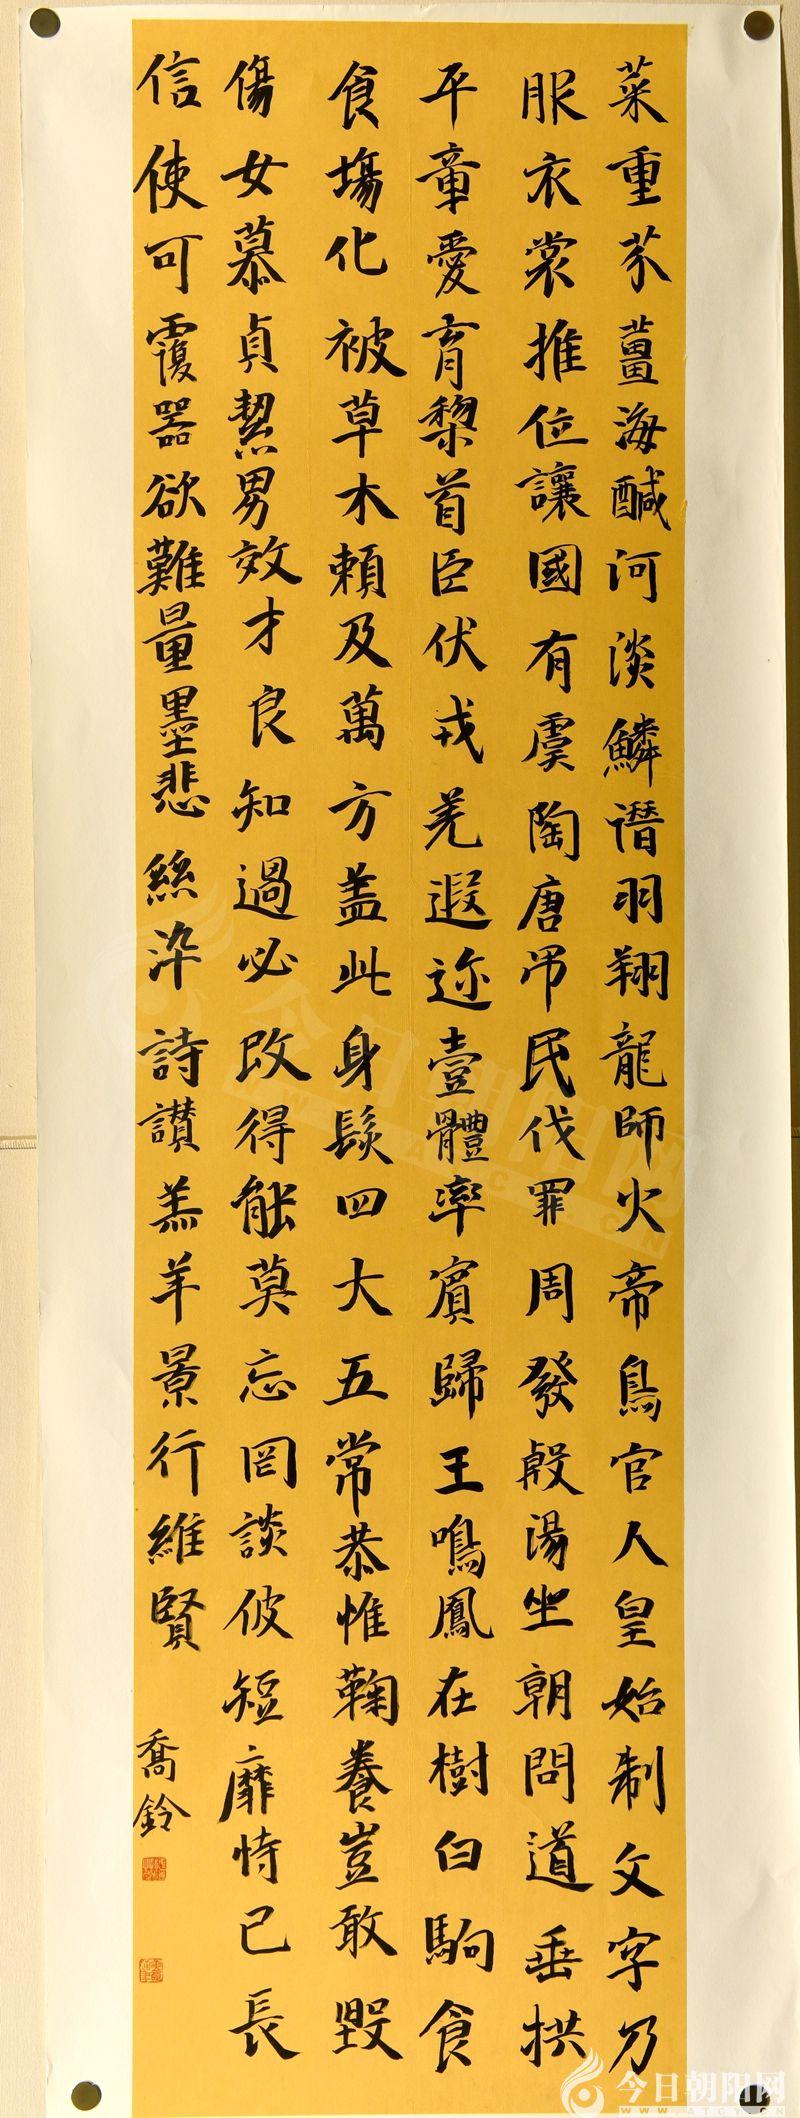 菜重芥薑海醎河淡鱗潛羽翔龍師火帝鳥官人皇始制文字乃
服衣裳推位讓國有虞陶唐吊民伐罪周發殷湯坐朝問道垂拱
平章愛育黎首臣伏戎羌遐迩壹體率賓歸王鳴鳳在樹白駒食
食場化被草木賴及萬方盖此身髮四大五常恭惟鞠養豈敢毀
傷女慕貞絜男效才良知過必改得能莫忘罔談彼短靡恃己長
信使可覆器欲難量墨悲絲染詩讃羔羊景行維賢
喬鈴
今日朝阳网
WWW.ATCY.CN
今日朝阳网
WWW.ATCY.CN